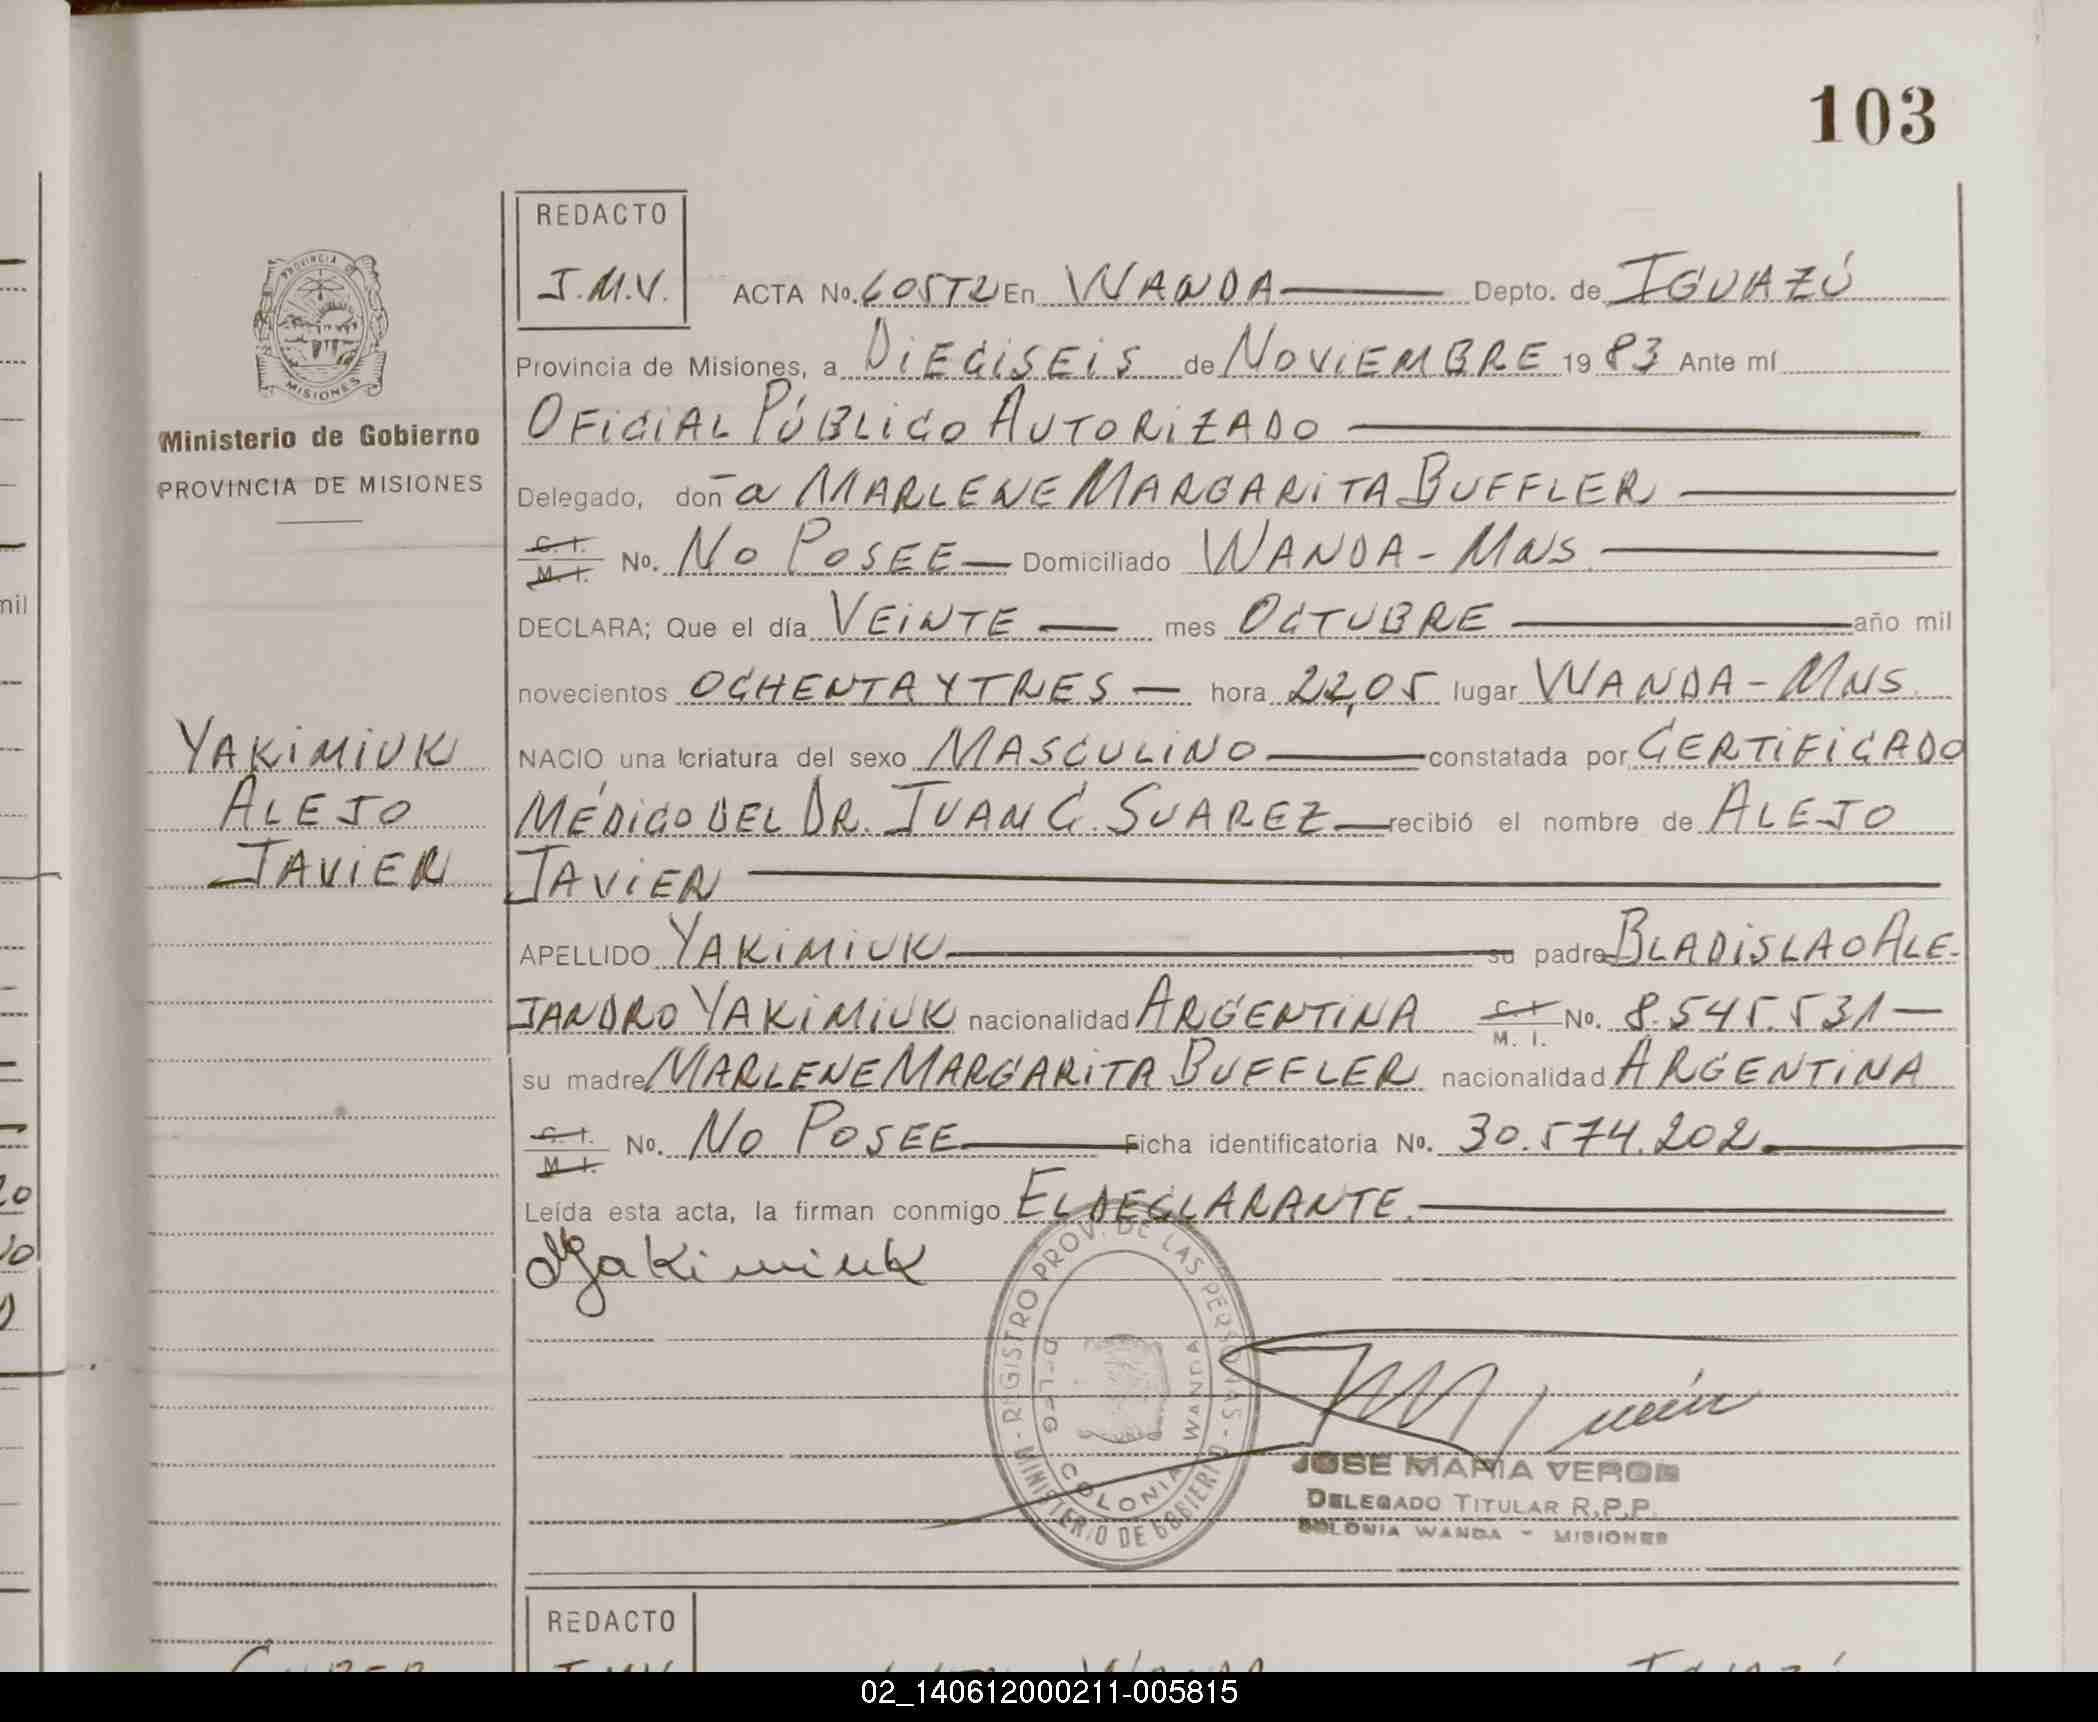 103
REDACTO
J.M.V.
ACTA No. 605T2 En WANDA Depto. de IGUAZÚ
Provincia de Misiones, a DIECISEIS de NOVIEMBRE 1983 Ante mí
OFICIAL PÚBLICO AUTORIZADO
Delegado, doña MARLENE MARGARITA BUFFLER
C. I. M. I. No. NO POSEE Domiciliado WANDA - MNS
DECLARA; Que el día VEINTE mes OCTUBRE año mil
novecientos OCHENTA Y TRES hora 22,05 lugar WANDA - MNS
NACIO una criatura del sexo MASCULINO constatada por CERTIFICADO
MÉDICO DEL DR. JUAN C. SUAREZ recibió el nombre de ALEJO
JAVIER
APELLIDO YAKIMIUK su padre BLADISLAO ALE-
JANDRO YAKIMIUK nacionalidad ARGENTINA C. I. M. I. No. 8.545.531
su madre MARLENE MARGARITA BUFFLER nacionalidad ARGENTINA
C. I. M. I. No. NO POSEE Ficha identificatoria No. 30.574.202
Leída esta acta, la firman conmigo EL DECLARANTE.
Yakimiuk
REGISTRO PROV. DE LAS PERSONAS - MINISTERIO DE GOBIERNO
DELEG COLONIA WANDA
JOSE MARIA VERON
DELEGADO TITULAR R.P.P.
COLONIA WANDA - MISIONES
PROVINCIA DE
MISIONES
Ministerio de Gobierno
PROVINCIA DE MISIONES
YAKIMIUK
ALEJO
JAVIER
mil
REDACTO
02_140612000211-005815